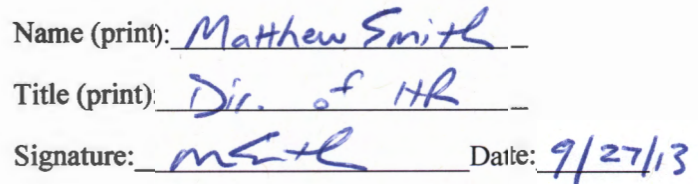 Name (print): Matthew Smith
Title (print): Dir. of HR
Signature: Date: 9/27/13